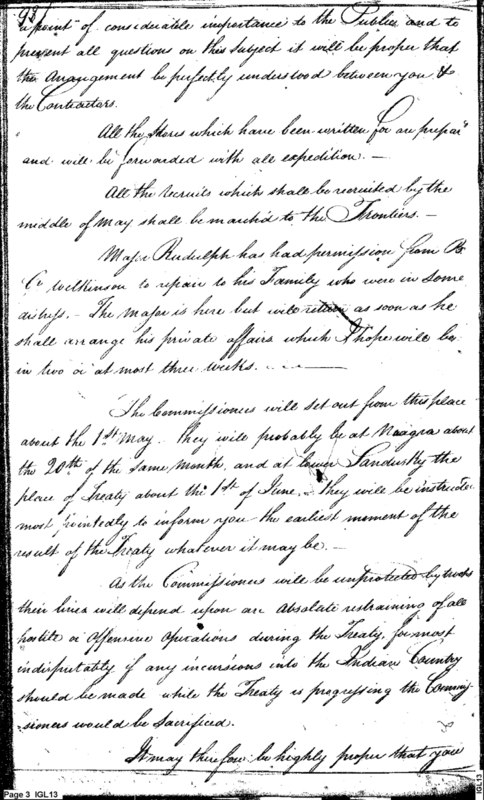 92
a point of considerable importance to the Public and to
prevent all questions on this subject it will be proper that
this arrangement be perfectly understood between you &
the Contractors.
All the Stores which have been written for are prepar'
and will be forwarded with all expedition. —
All the recruits which shall be recruited by the
middle of May shall be march'd to the Frontiers. —
Major Rudulph has had permission from B.
G. Wilkinson to repair to his Family who were in some
distress. — The major is here but will return as soon as he
shall arrange his private affairs which I hope will be
in two or at most three weeks. — —
The Commissioners will set out from this place
about the 1st May. They will probably be at Niagra about
the 20th of the same month, and at lower Sandusky the
place of Treaty about the 1st of June. They will be instructed
most pointedly to inform you the earliest moment of the
result of the Treaty whatever it may be. —
As the Commissioners will be unprotected by troops
their lives will depend upon an absolute restraining of all
hostile or offensive operations during the Treaty, for most
indisputably if any incursions into the Indian Country
should be made while the Treaty is progressing the Commis-
-sioners would be sacrificed.
It may therefore be highly proper that you
Page 3 IGL13
IGL13